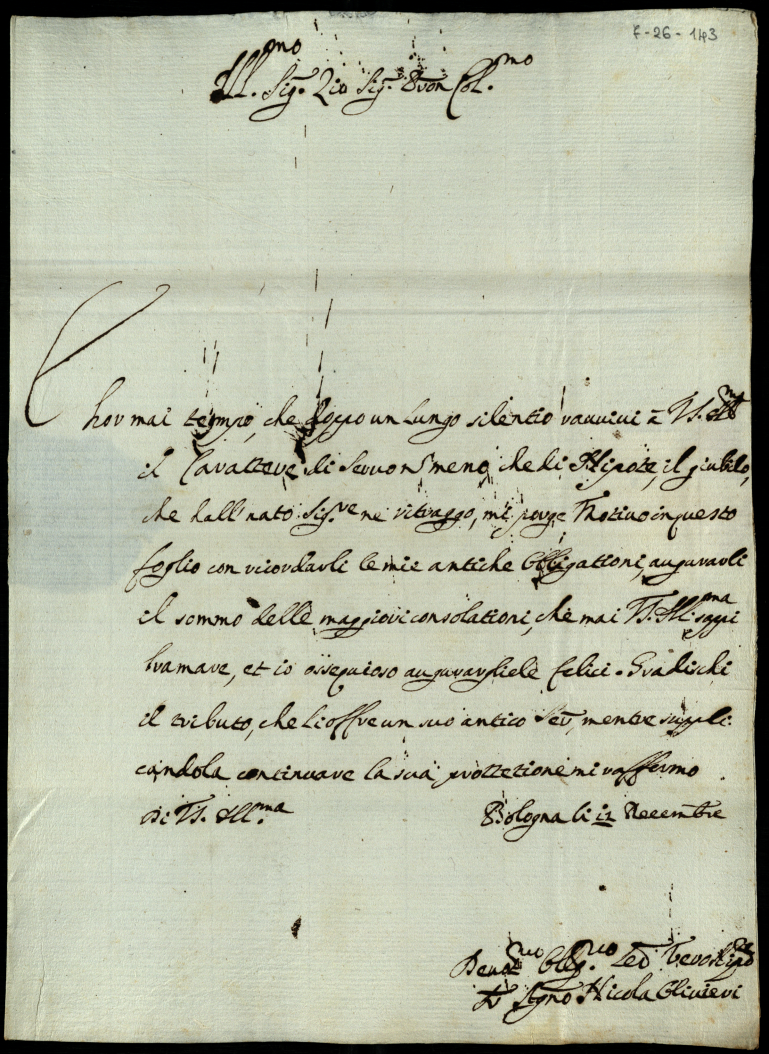 7-26-143
Ill.mo Sig.r Zio Sig.r Pron Col.mo
E hor mai tempo, che doppo un lungo silentio ravvivi à VS. Ill
il Carattere di Servo n meno che di Nipote, il giubilo,
che dall nato Sig.re ne ritraggo, mi porge Motivo in questo
foglio con ricordarli le mie antiche Obligationi, augurarli
il sommo delle maggiori consolationi, che mai VS. Ill.ma sappi
bramare, et io ossequioso augurargliele felici. Gradischi
il tributo, che li offre un suo antico Ser, mentre suppli-
candola continuare la sua prottetione mi raffermo
Di VS. Ill.ma Bologna li 12 Decembre
Devot.mo Obblig.mo
Nicola Olivieri